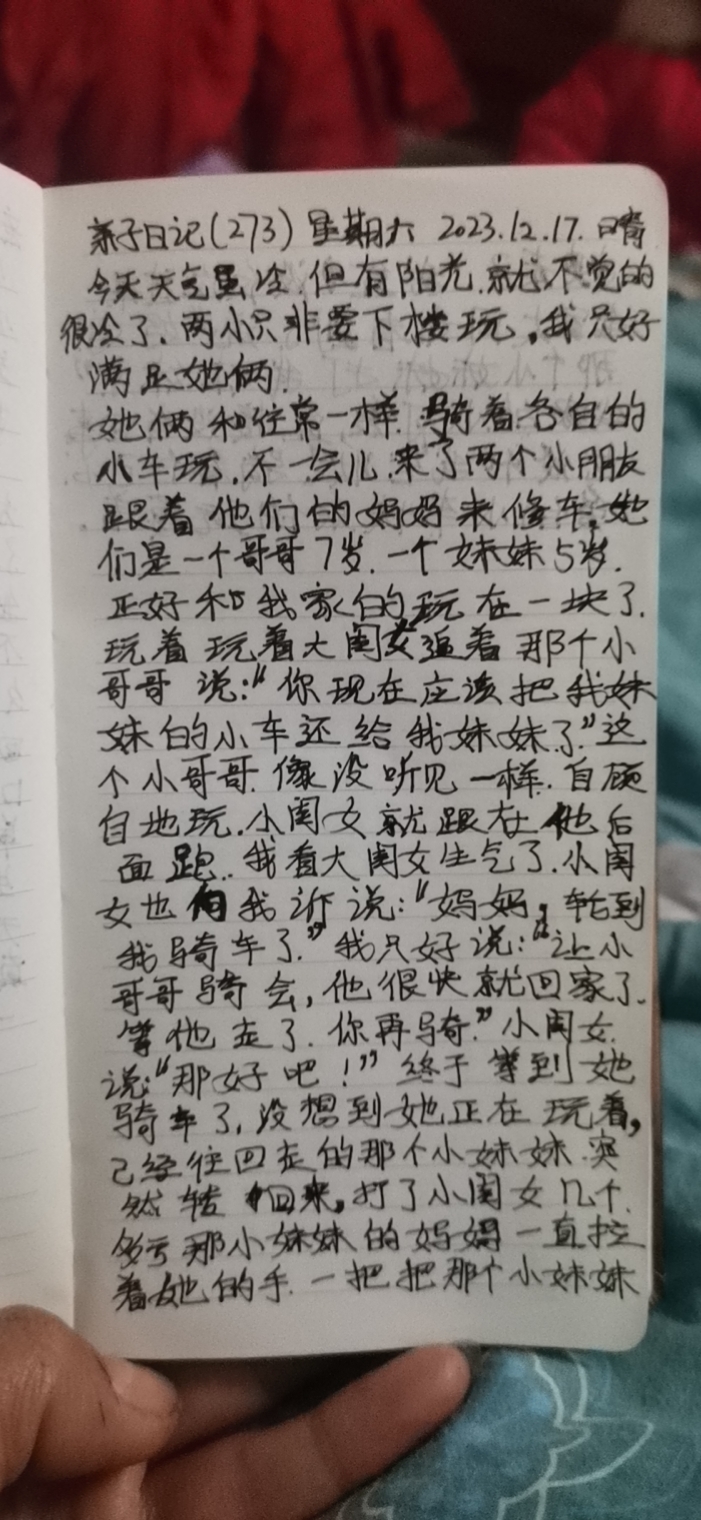 亲子日记(273) 星期六 2023.12.17. 晴
今天天气虽冷.但有阳光.就不觉的
很冷了.两小只非要下楼玩,我只好
满足她俩.
她俩和往常一样.骑着各自的
小车玩.不一会儿.来了两个小朋友
跟着他们的妈妈来修车,她
们是一个哥哥7岁.一个妹妹5岁.
正好和我家的玩在一块了.
玩着玩着大闺女追着那个小
哥哥说:“你现在应该把我妹
妹的小车还给我妹妹了.”这
个小哥哥.像没听见一样.自顾
自地玩.小闺女就跟在他后
面跑..我看大闺女生气了.小闺
女也向我诉说:“妈妈,轮到
我骑车了.”我只好说:“让小
哥哥骑会,他很快就回家了.
等他走了.你再骑.”小闺女.
说:“那好吧!”终于等到她
骑车了,没想到她正在玩着,
己经往回走的那个小妹妹.突
然转回来,打了小闺女几个.
多亏那小妹妹的妈妈一直拉
着她的手.一把把那个小妹妹